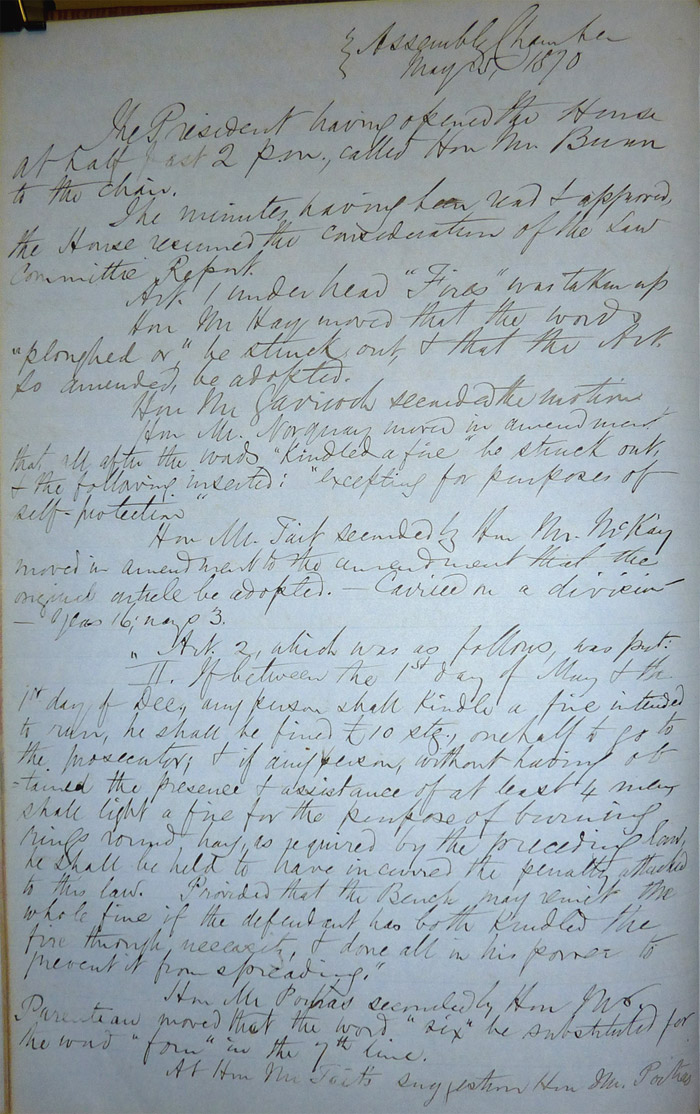 Assembly Chamber
May 25, 1870
The President having opened the House
at half past 2 p.m., called Hon Mr. Bunn
to the chair.
The minutes having been read & approved,
the House resumed the consideration of the Law
Committee Report.
Art. 1 under head "Fires" was taken up
Hon Mr Hay moved that the words
"ploughed or" be struck out, & that the Art.
so amended, be adopted.
Hon Mr seconded the motion
Hon Mr. Norquay moved in amendment
that all after the words "Kindled a fire" be struck out,
& the following inserted: "excepting for purposes of
self-protection"
Hon Mr. Tait seconded by Hon Mr. McKay
moved in amendment to the amendment that the
original article be adopted. — Carried on a division
— Yeas 16; nays 3.
"Art. 2, which was as follows, was put:
II. If between the 1st day of May & the
1st day of Decr, any person shall kindle a fire intended
to run, he shall be fined £10 stg., one half to go to
the prosecutor; & if any person, without having ob
-tained the presence & assistance of at least 4 men
shall light a fire for the purpose of burning
rings round hay, as required by the preceding law,
he shall be held to have incurred the penalty attached
to this law. Provided that the Bench may remit the
whole fine if the defendant has both kindled the
fire through necessity, & done all in his power to
prevent it from spreading."
Hon Mr Poitras seconded by Hon Mr.
Parenteau moved that the word "six" be substituted for
the word "four" in the 7th line.
At Hon Mr Tait's suggestion Hon Mr. Poitras